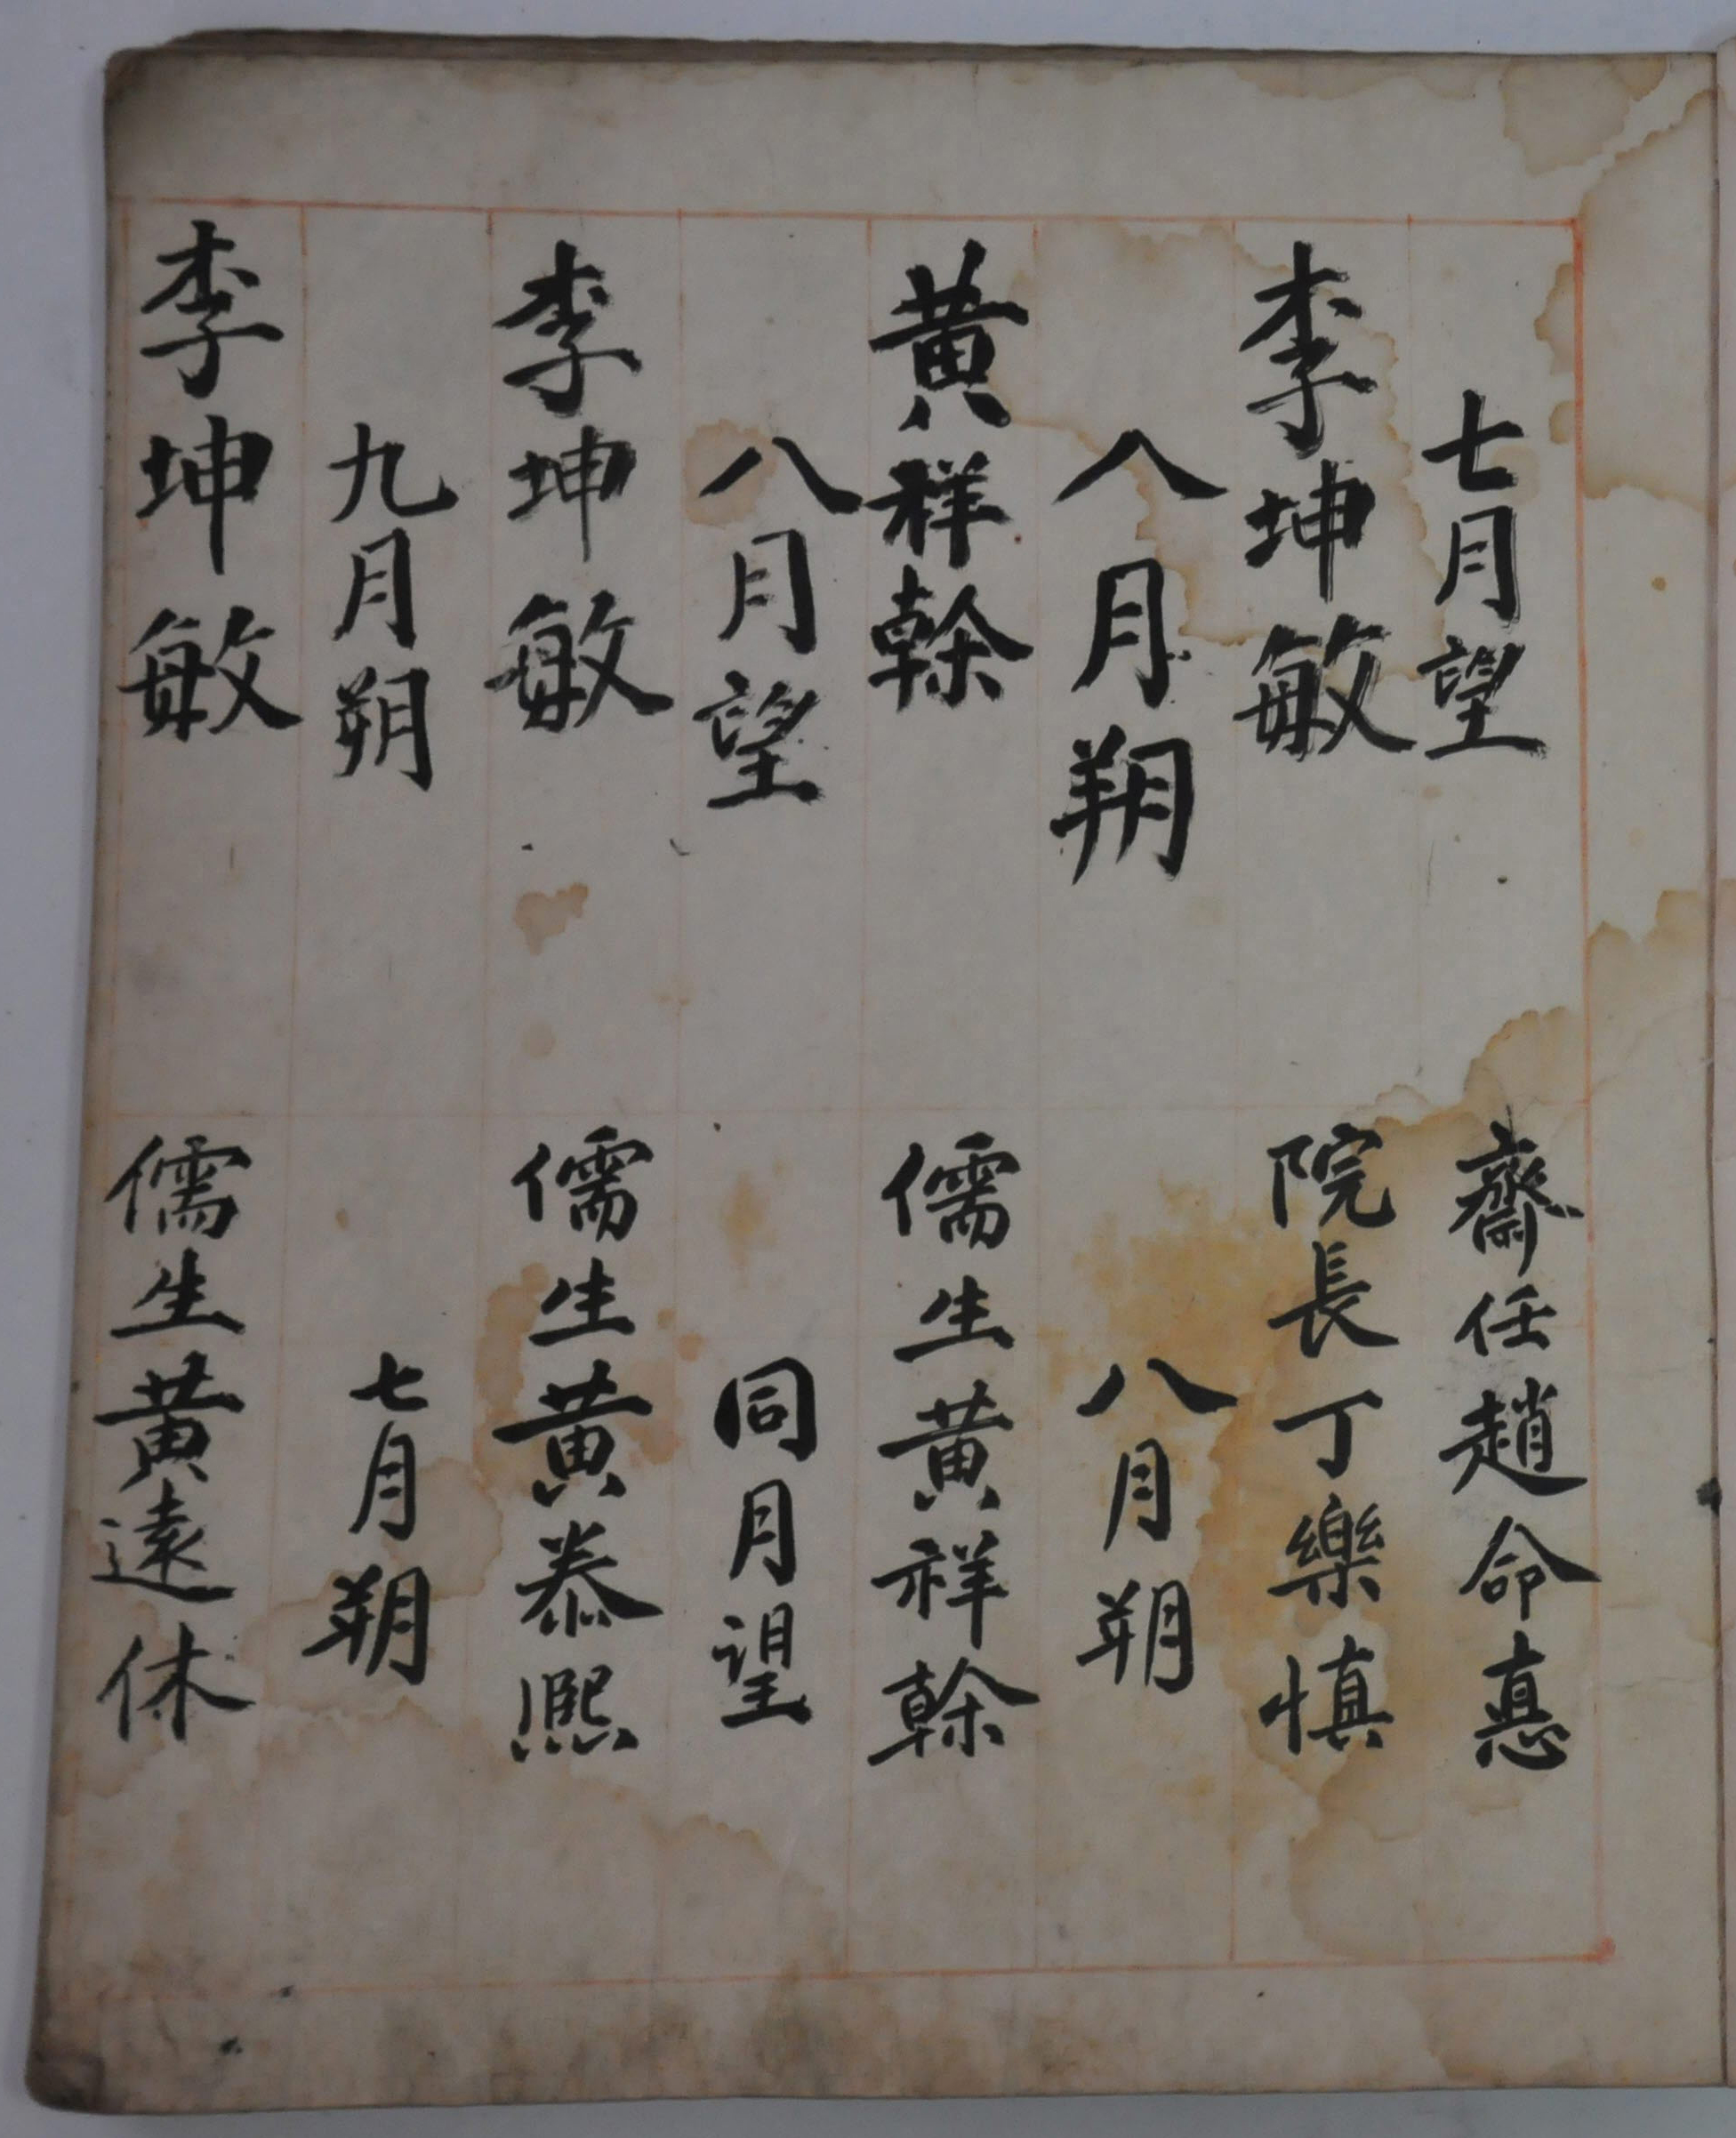 七月望
李坤敏
八月朔
黄祥榦
八月望
李坤敏
九月朔
李坤敏
齋任趙命悳
院長丁樂慎
八月朔
儒生黄祥榦
同月望
儒生黄泰凞
七月朔
儒生黄遠休